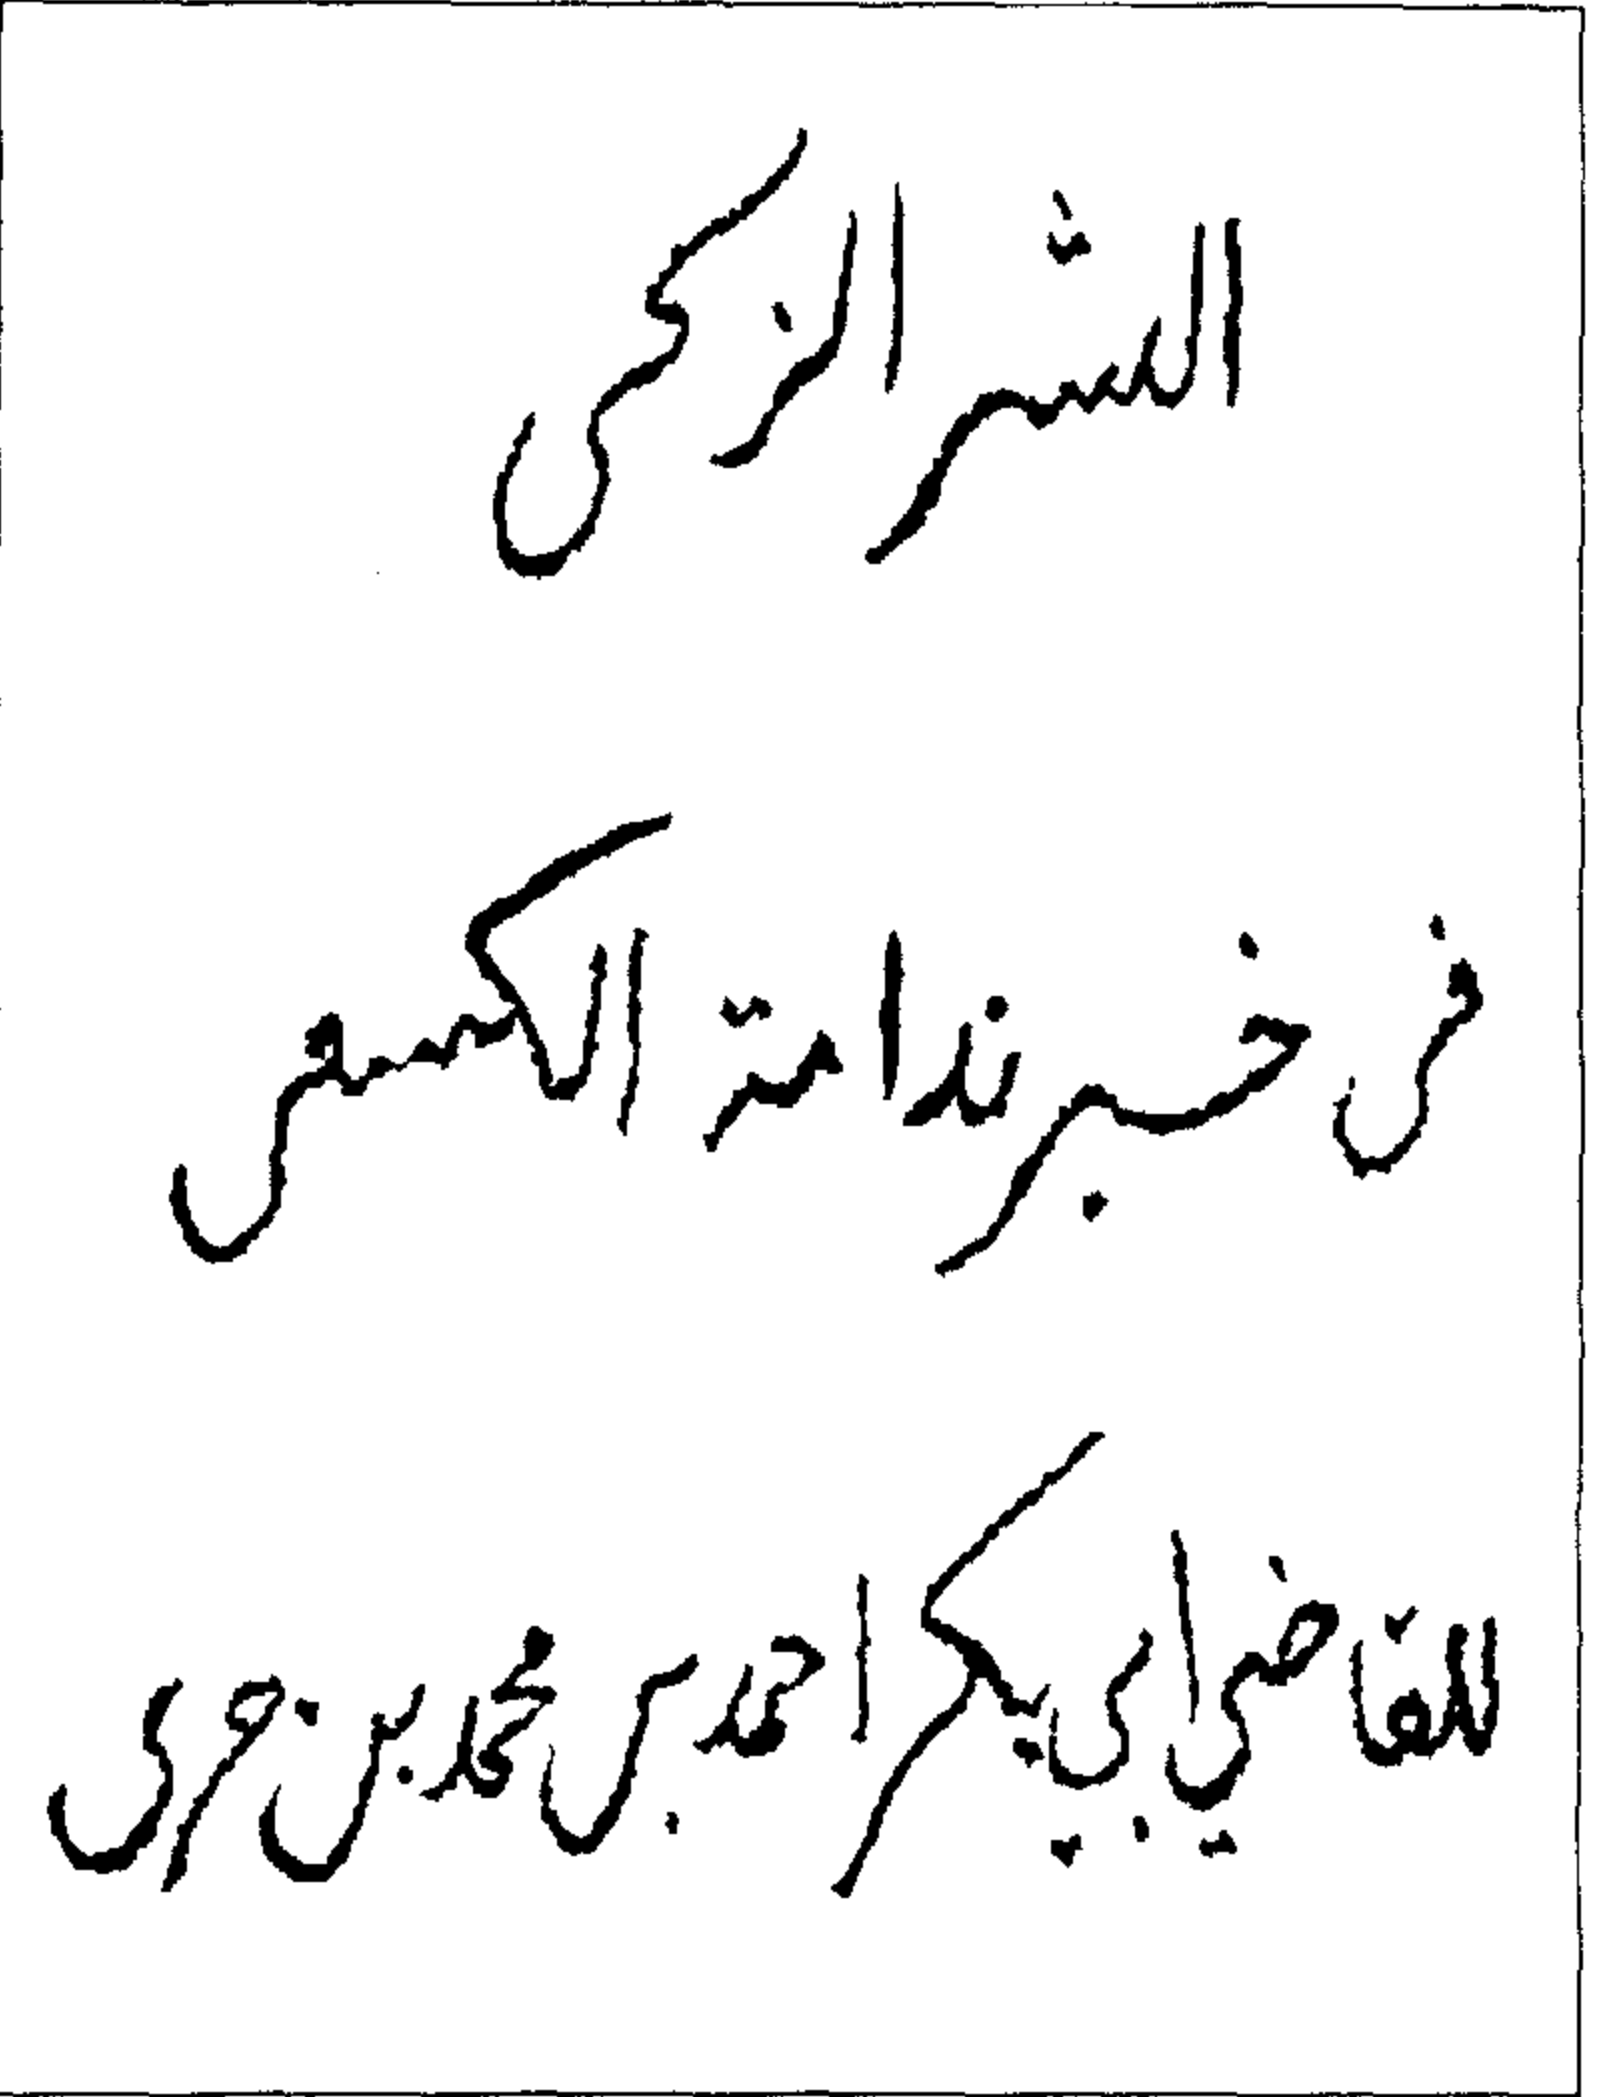 النشر الزكى
فى خبر ندامة الكسعى
للقاضي ابي بكر احمد بن محمد بن